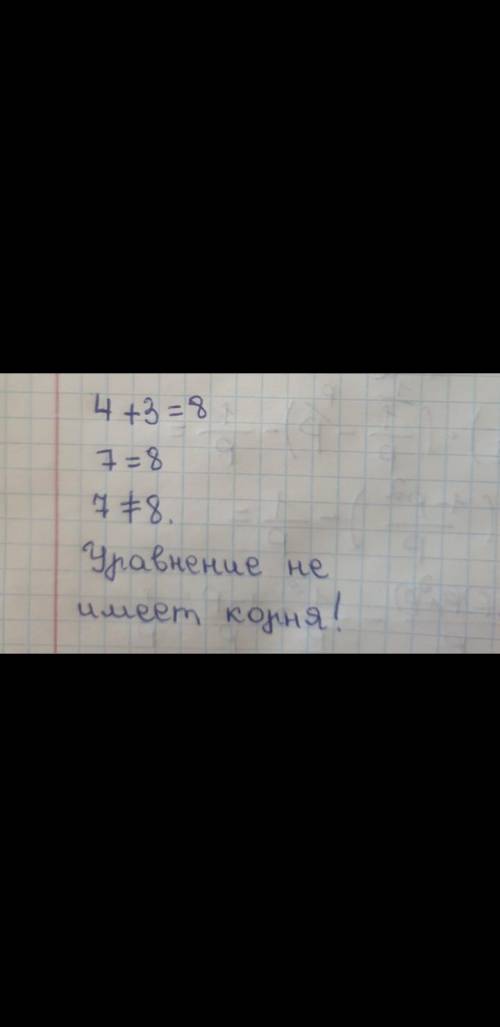 4+3=8
7=8
7≠8.
Уравнение не
имеет корня!